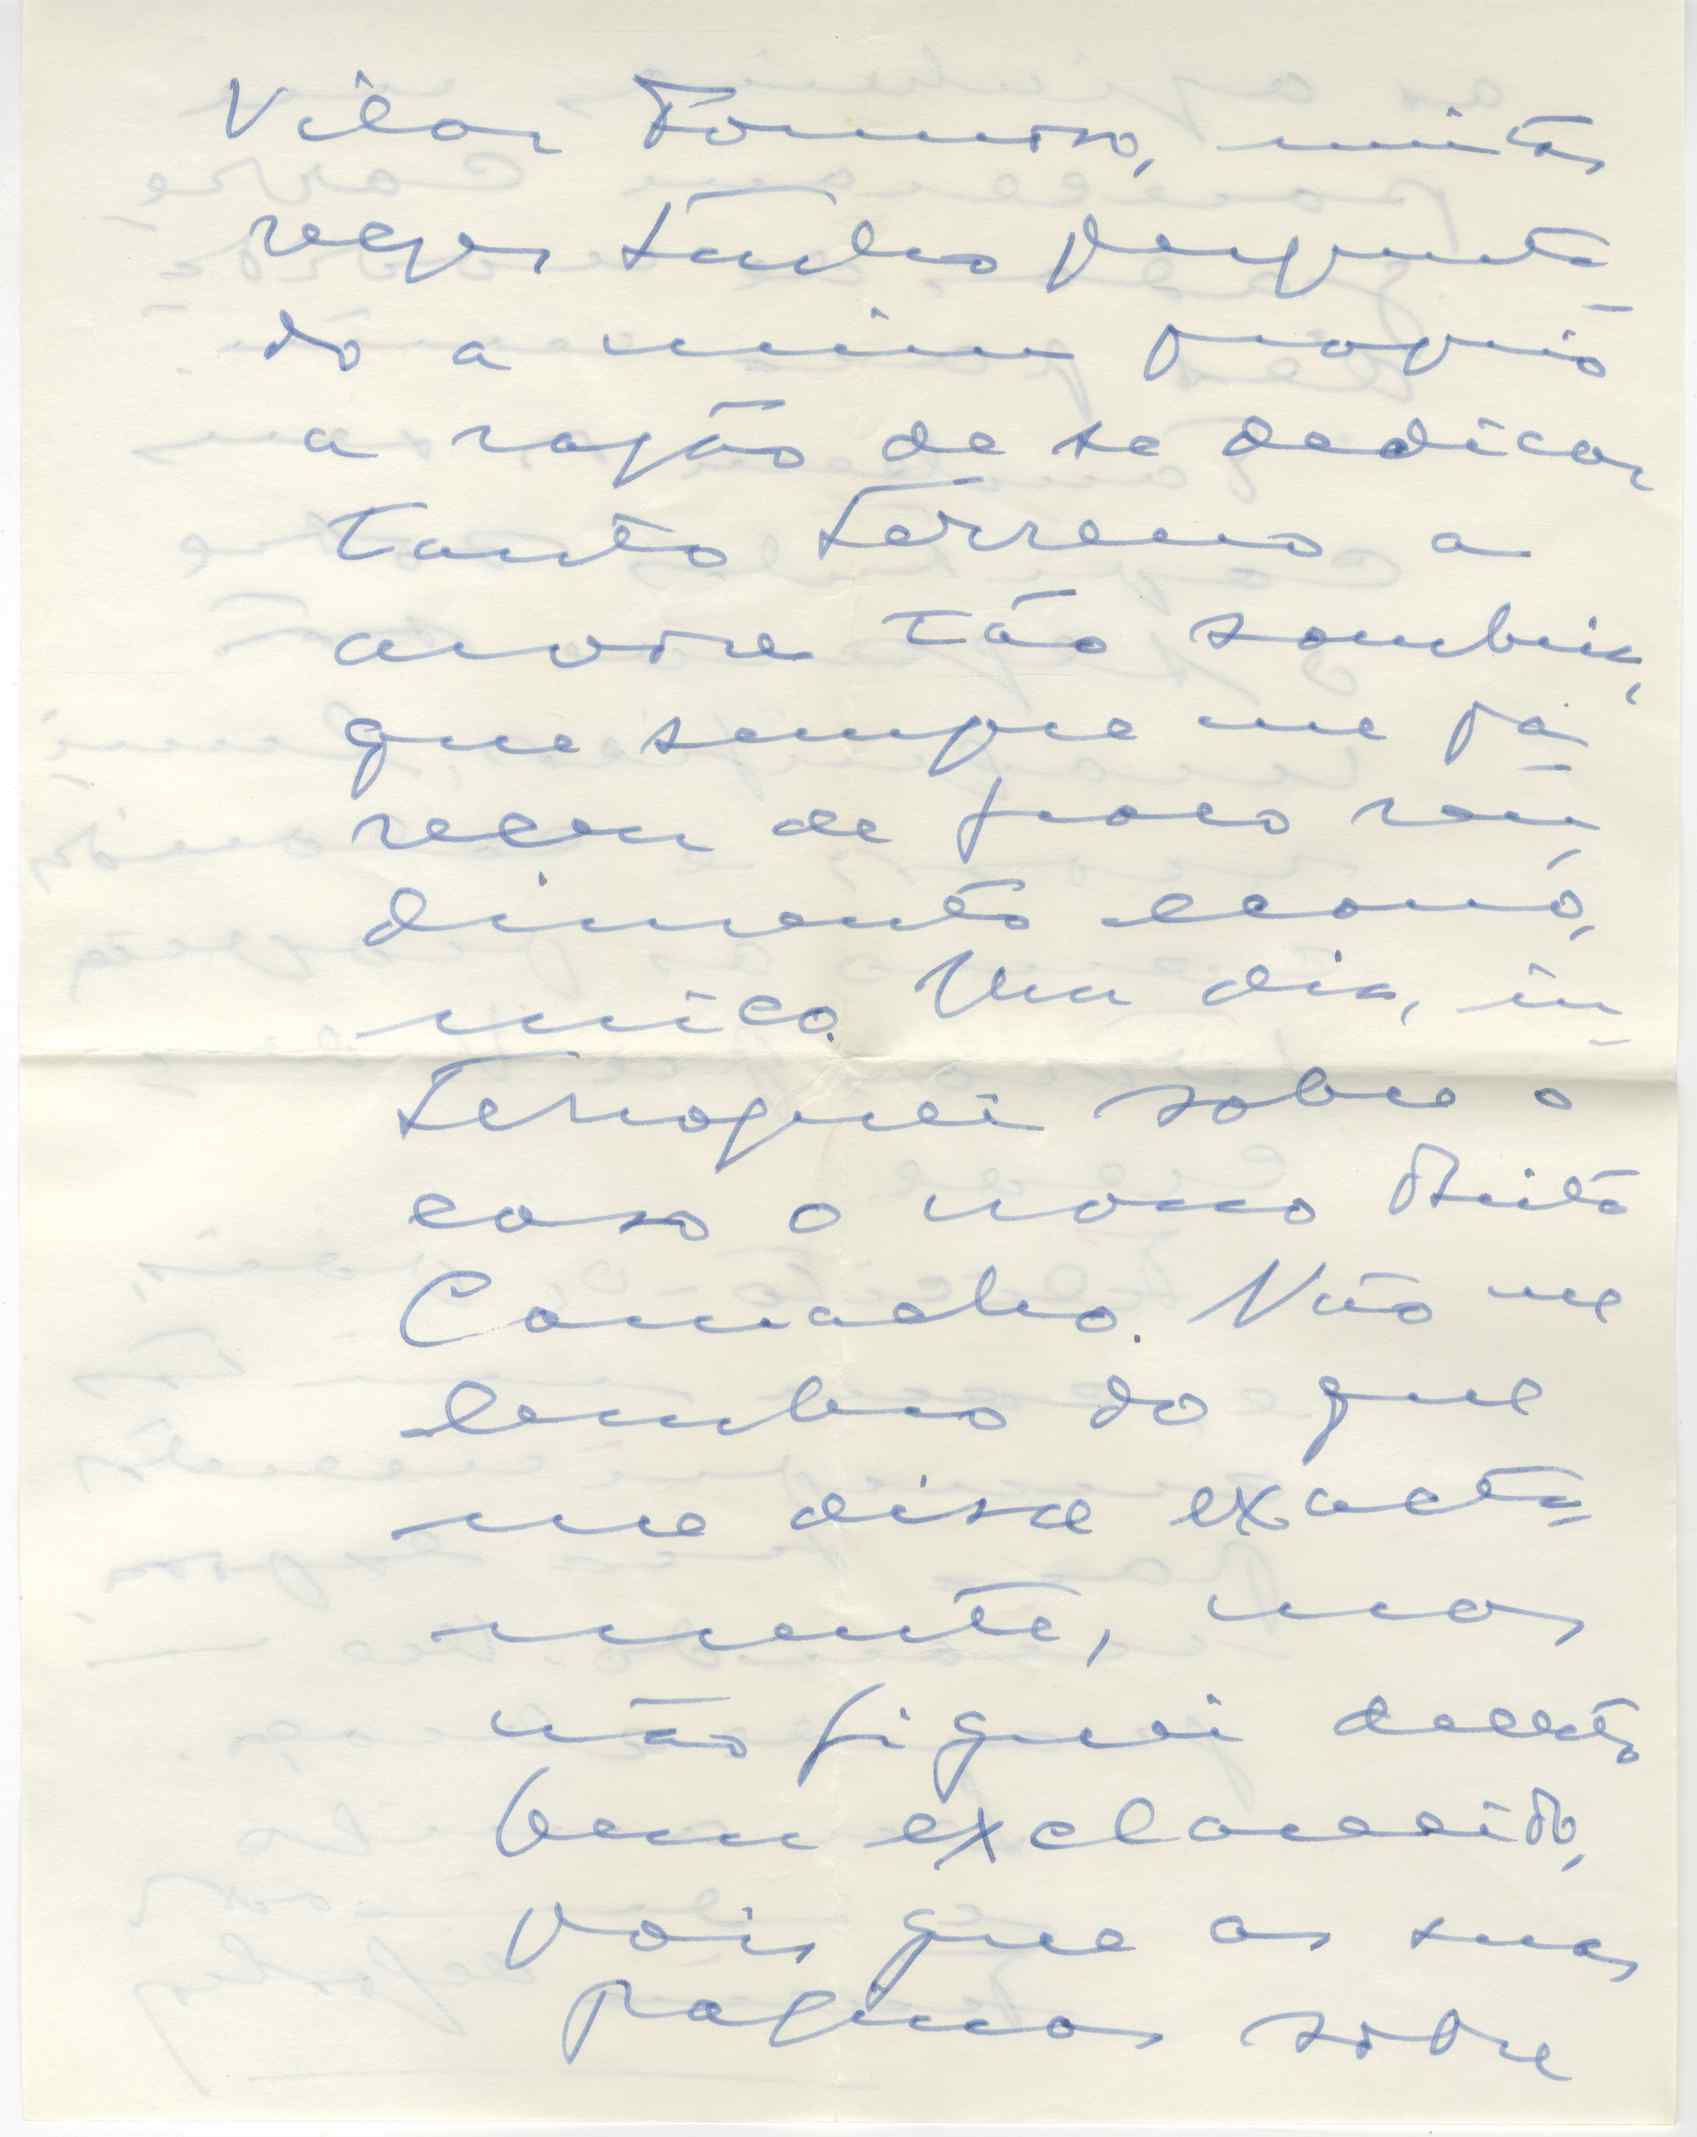 Vilar Formoso, muitas
vezes tenho pergunta-
do a mim proprio
a razão de se dedicar
tanto terreno a
arvore tão sombria,
que sempre me pa-
receu de fraco ren-
dimento econó-
mico. Um dia, in-
terroguei sobre o
caso o nosso Brito
Camacho. Não me
lembro do que
me disse exacta-
mente, mas
não fiquei decerto
bem exclarecido,
pois que as suas
paginas sobre